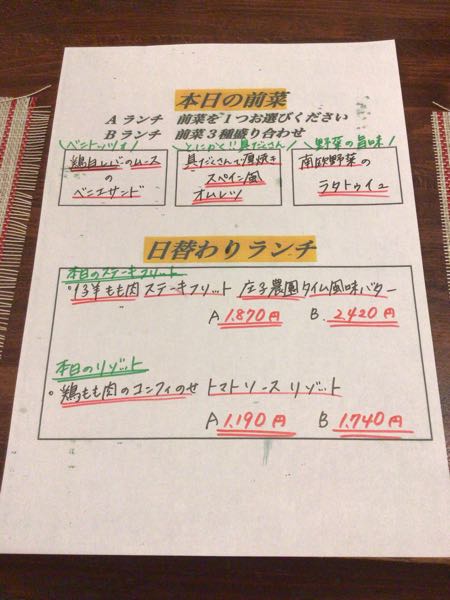 本日の前菜
Aランチ 前菜を1つお選びください
Bランチ 前菜3種盛り合わせ
とにかく!!具だくさん
野菜の旨味
鶏白レバーのムース
の
ベニエサンド
具だくさんで厚焼き
スペイン風
オムレツ
南欧野菜の
ラタトゥイユ
日替わりランチ
本日のステーキフリット
もも肉 ステーキフリット 庄子農園タイム風味バター
A 1,870円 B. 2,420円
本日のリゾット
鶏もも肉のコンフィのせ トマトソース リゾット
A 1,190円 B 1,740円